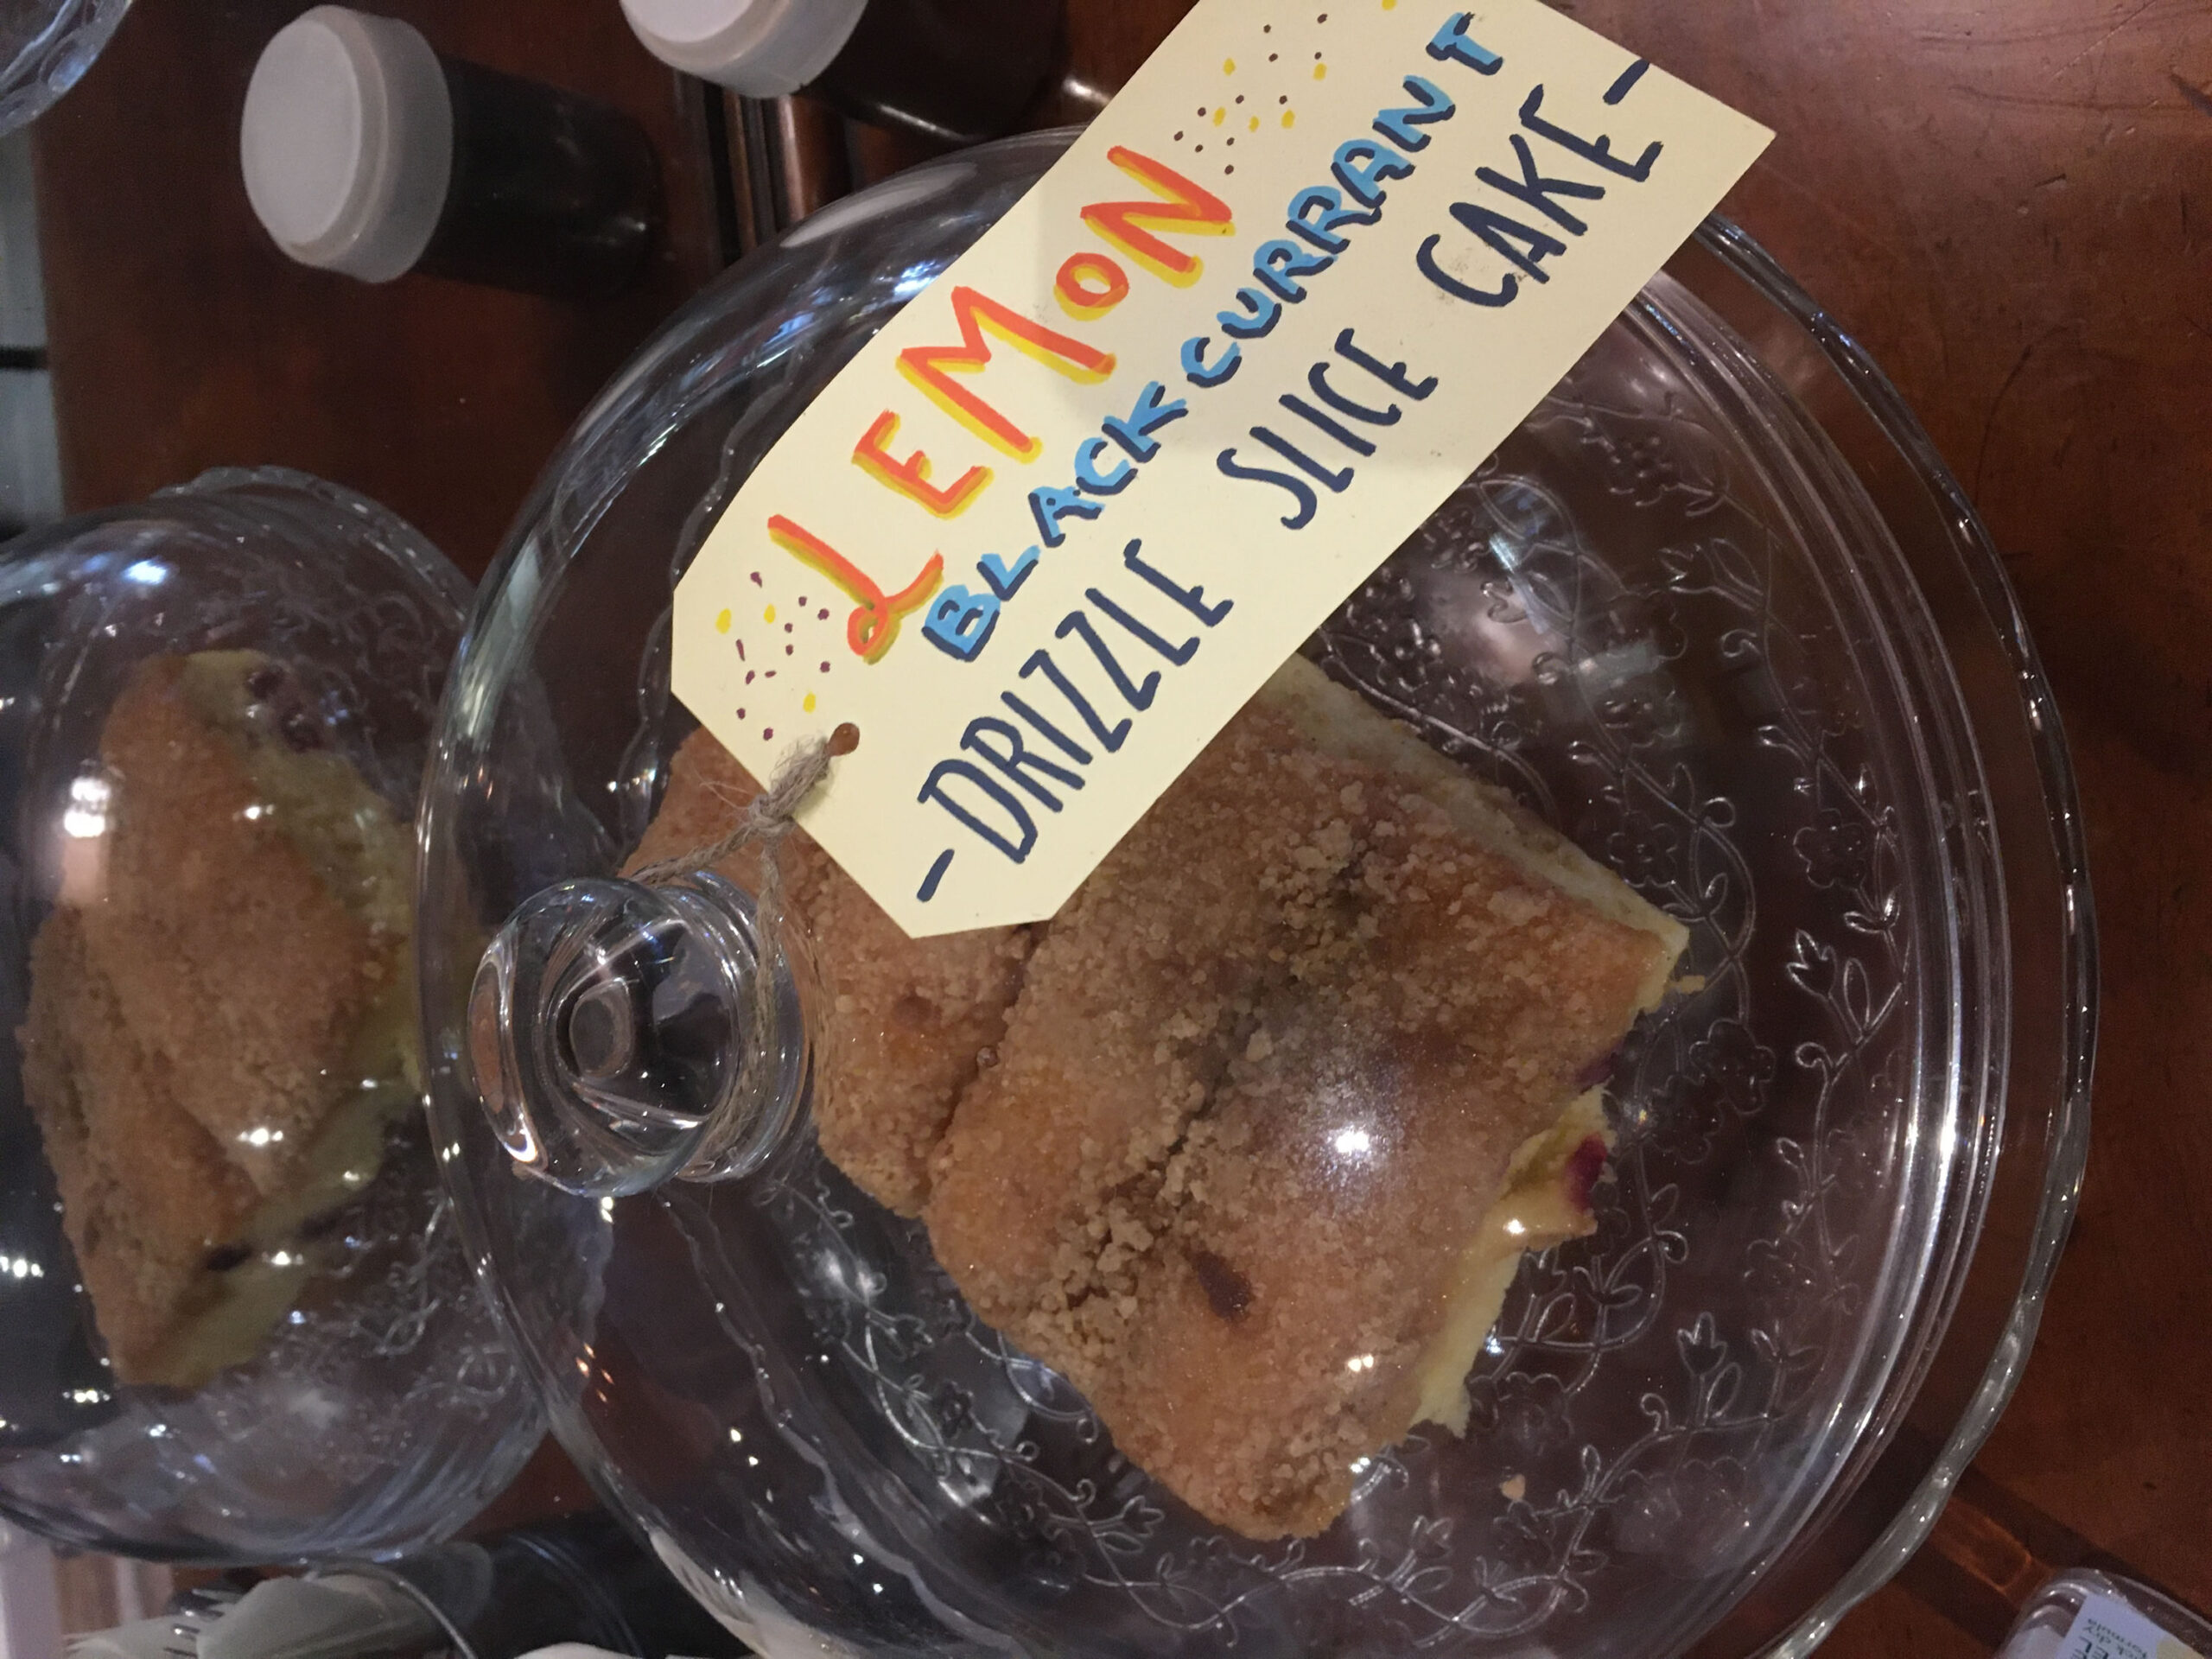 LEMON
BLACKCURRANT
-DRIZZLE SLICE CAKE-